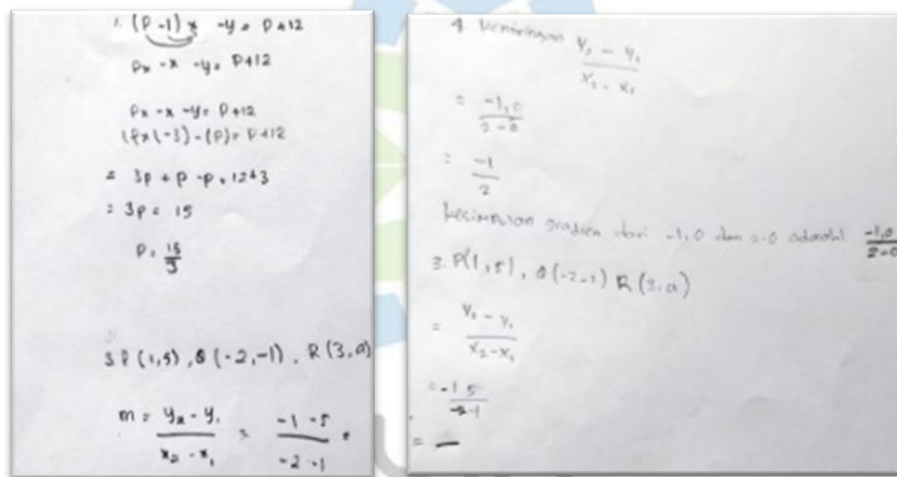 1. (P -1)x -y = P+12
Px -x -y = P+12
Px -x -y = P+12
(Px(-3)-(P) = P+12
= 3P + P -P = 12+3
= 3P = 15
P = 15/3
3 P(1,5), Q(-2,-1), R(3,a)
m = y₂ - y₁ / x₂ - x₁ = -1 -5 / -2 -1 =
4. Kemiringan y₂ - y₁ / x₂ - x₁
= -1,0 / 2-0
= -1 / 2
Kesimpulan gradien dari -1,0 dan 2-0 adalah -1,0 / 2-0
3. P(1,5), Q(-2-1) R(3,a)
= y₂ - y₁ / x₂ - x₁
= -1 5 / -2-1
= —